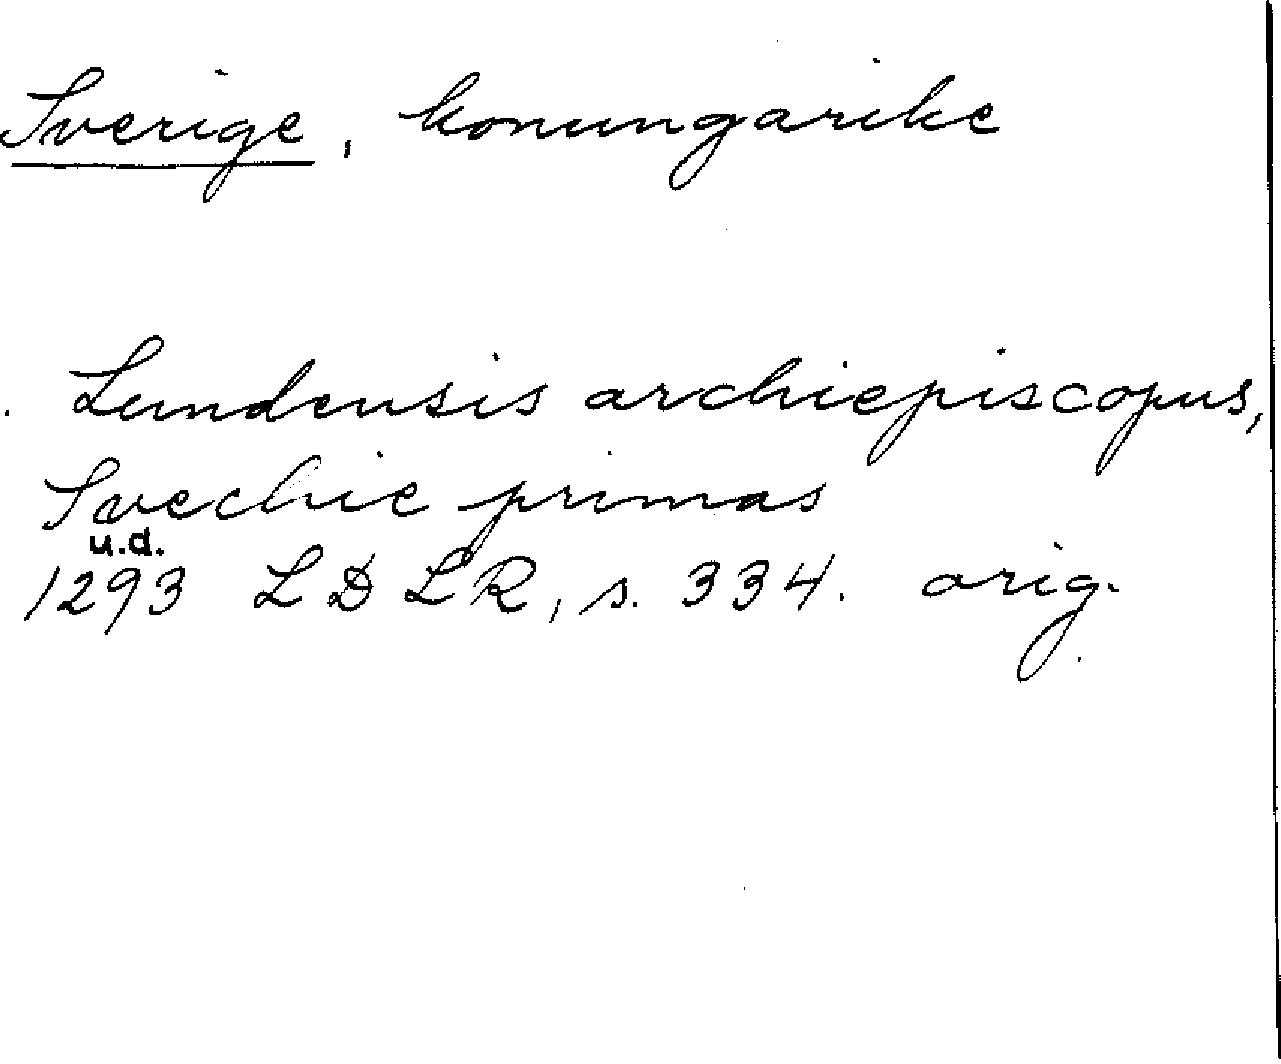 Sverige, konungarike
. Lundensis archiepiscopus,
Svechie primas
u.d.
1293 LDLR, s. 334. orig.